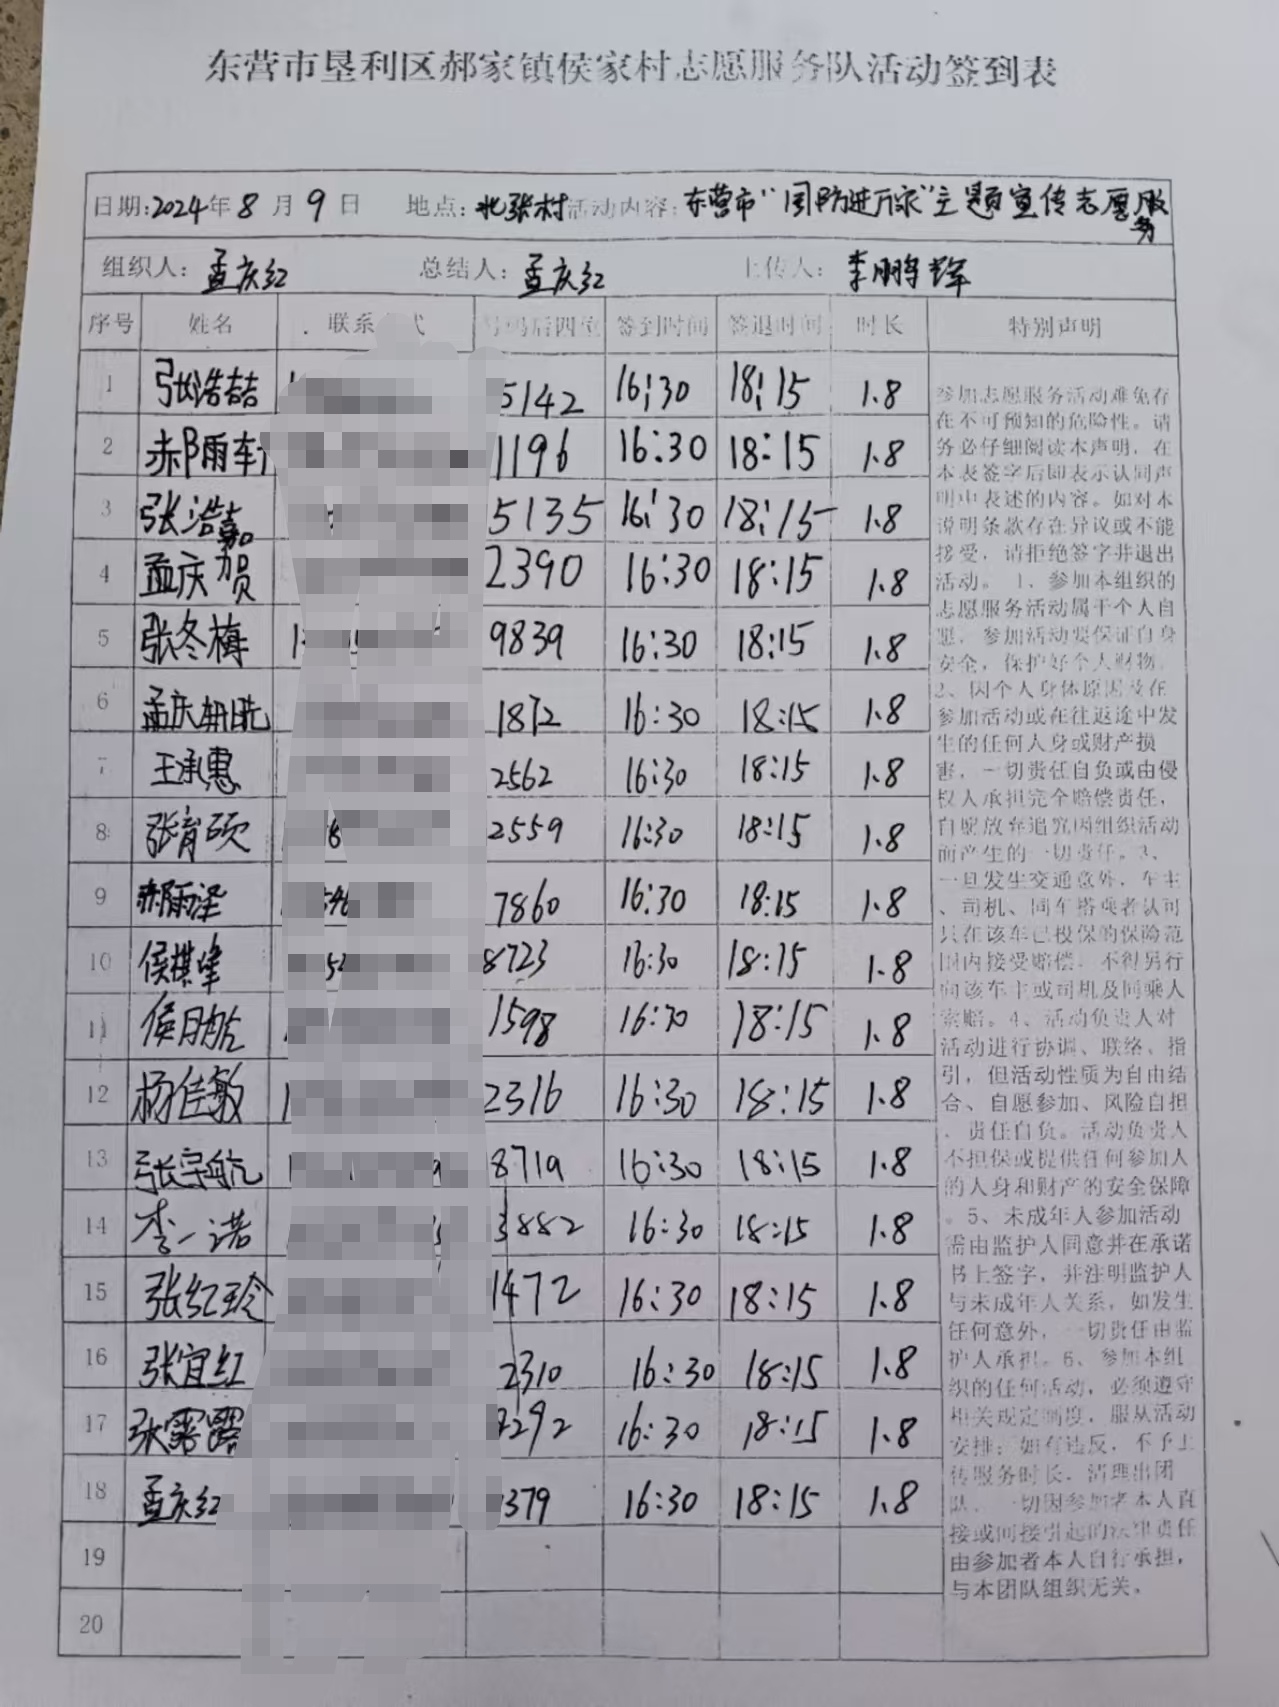 东营市垦利区郝家镇侯家村志愿服务队活动签到表
日期:2024年8月9日 地点:北张村 活动内容:东营市“国防进万家”主题宣传志愿服务
组织人:孟庆红 总结人:孟庆红 上传人:李鹏辉
序号 姓名 联系 式 号码后四位 签到时间 签退时间 时长 特别声明
1 张浩喆 5142 16:30 18:15 1.8
2 郝雨轩 1196 16:30 18:15 1.8
3 张浩嘉 5135 16:30 18:15 1.8
4 孟庆贺 2390 16:30 18:15 1.8
5 张冬梅 9839 16:30 18:15 1.8
6 孟庆 1872 16:30 18:15 1.8
7 王承惠 2562 16:30 18:15 1.8
8 张育硕 2559 16:30 18:15 1.8
9 郝雨泽 7860 16:30 18:15 1.8
10 侯棋峰 8723 16:30 18:15 1.8
11 侯 1598 16:30 18:15 1.8
12 杨佳敏 2316 16:30 18:15 1.8
13 张宇航 8719 16:30 18:15 1.8
14 李一诺 3882 16:30 18:15 1.8
15 张红玲 1472 16:30 18:15 1.8
16 张宜红 2310 16:30 18:15 1.8
17 张露露 2292 16:30 18:15 1.8
18 孟庆红 379 16:30 18:15 1.8
19
20
参加志愿服务活动难免存
在不可预知的危险性。请
务必仔细阅读本声明，在
本表签字后即表示认同声
明中表述的内容。如对本
说明条款存在异议或不能
接受，请拒绝签字并退出
活动。1、参加本组织的
志愿服务活动属于个人自
愿，参加活动要保证自身
安全，保护好个人财物。
2、因个人身体原因及在
参加活动或在往返途中发
生的任何人身或财产损
害，一切责任自负或由侵
权人承担完全赔偿责任，
自愿放弃追究因组织活动
而产生的一切责任。3、
一旦发生交通意外，车主
、司机、同车搭乘者认可
只在该车已投保的保险范
围内接受赔偿，不得另行
向该车主或司机及同乘人
索赔。4、活动负责人对
活动进行协调、联络、指
引，但活动性质为自由结
合、自愿参加、风险自担
、责任自负。活动负责人
不担保或提供任何参加人
的人身和财产的安全保障
。5、未成年人参加活动
需由监护人同意并在承诺
书上签字，并注明监护人
与未成年人关系，如发生
任何意外，一切责任由监
护人承担。6、参加本组
织的任何活动，必须遵守
相关规定制度，服从活动
安排；如有违反，不予上
传服务时长，清理出团
队，一切因参加者本人直
接或间接引起的法律责任
由参加者本人自行承担，
与本团队组织无关。